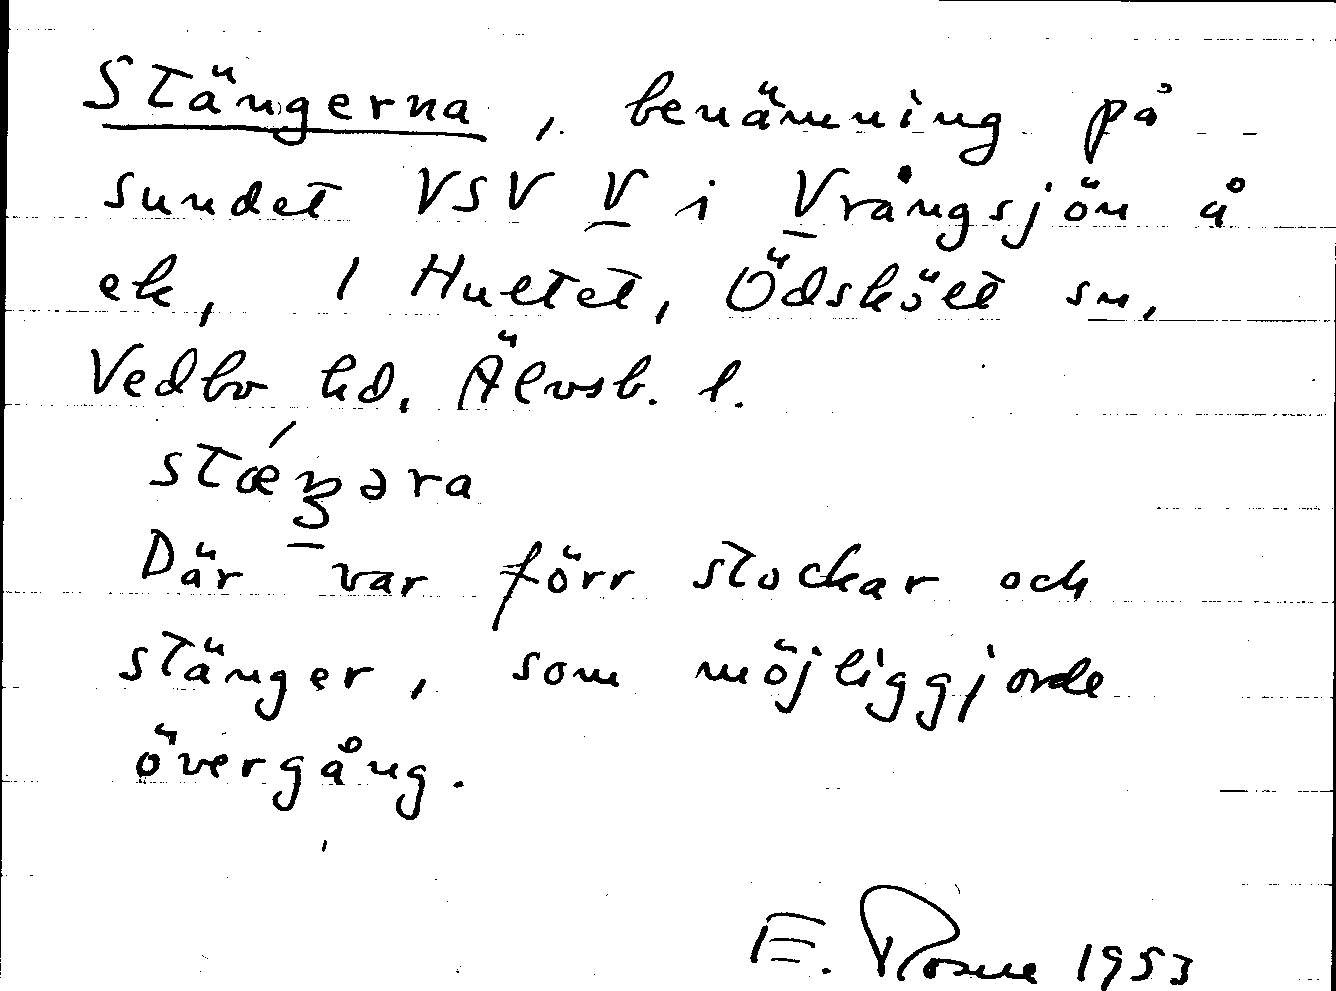 Stängerna, benämning på
sundet VSV V i Vrångsjön å
ek, 1 Hultet, Ödskölt sn,
Vedbo hd. Älvsb. l.
Där var förr stockar och
stänger, som möjliggjorde
övergång.
E. 1953